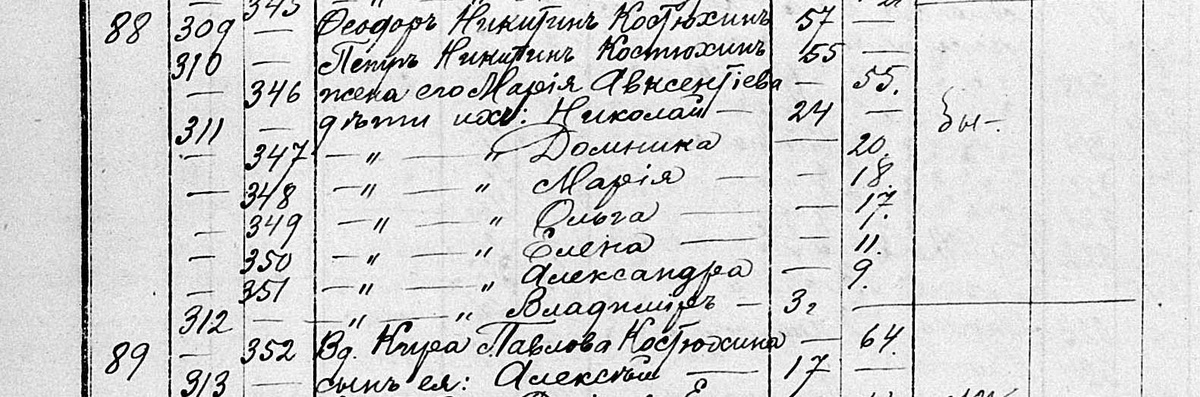 345
88 309 — Ѳеодоръ Никитинъ Костюхинъ 57
310 — Петръ Никитинъ Костюхинъ 55 —
— 346 жена его Марія Авксентіева — 55.
311 — дѣти ихъ: Николай — 24 —
— 347 — " — " Домника — 20.
— 348 — " — " Марія — — 18.
— 349 — " — " Ольга — — 17.
— 350 — " — " Елена — — 11.
— 351 — " — " Александра — 9.
312 — — " — " Владиміръ — 3 г —
89 — 352 Вд. Кира Павлова Костюхина — 64.
313 — сынъ ея: Алексѣй — 17 —